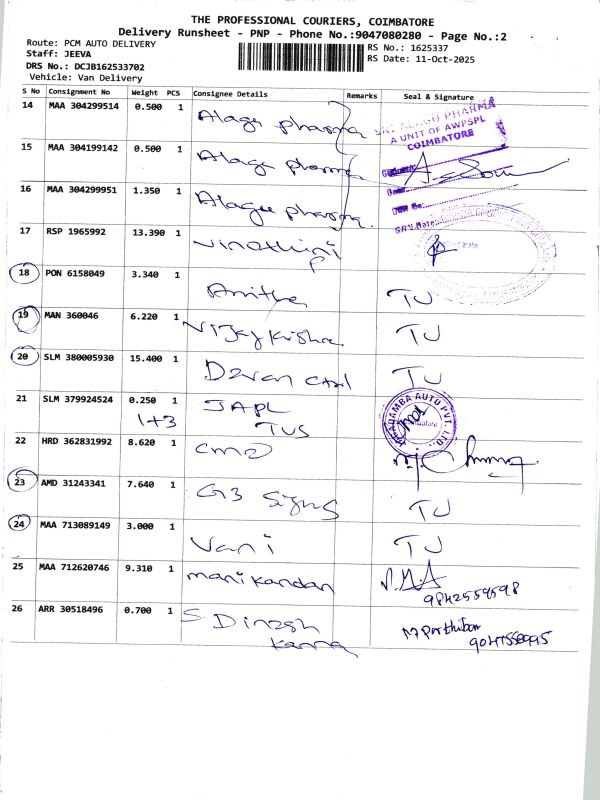 THE PROFESSIONAL COURIERS, COIMBATORE
Delivery Runsheet - PNP - Phone No.:9047080280 - Page No.:2
Route: PCM AUTO DELIVERY
RS No.: 1625337
Staff: JEEVA
RS Date: 11-Oct-2025
DRS No.: DCJB162533702
Vehicle: Van Delivery
S No Consignment No Weight PCS Consignee Details Remarks Seal & Signature
14 MAA 304299514 0.500 1 Alagu pharma
PHARMA
A UNIT OF AWPSPL
COIMBATORE
15 MAA 304199142 0.500 1 Alagu pharma
16 MAA 304299951 1.350 1 Alagu pharma
17 RSP 1965992 13.390 1
18 PON 6158049 3.340 1 Anitha TJ
19 MAN 360046 6.220 1 Vijay Krishna TJ
20 SLM 380005930 15.400 1 TJ
21 SLM 379924524 0.250 1 JAPL
1+3 TVS
JAGADAMBA AUTO PVT. LTD.
Coimbatore
22 HRD 362831992 8.620 1
23 AMD 31243341 7.640 1 G3 Signs TJ
24 MAA 713089149 3.000 1 Vani TJ
25 MAA 712620746 9.310 1 manikandan
26 ARR 30518496 0.700 1 S. Dinesh
M Parthiban